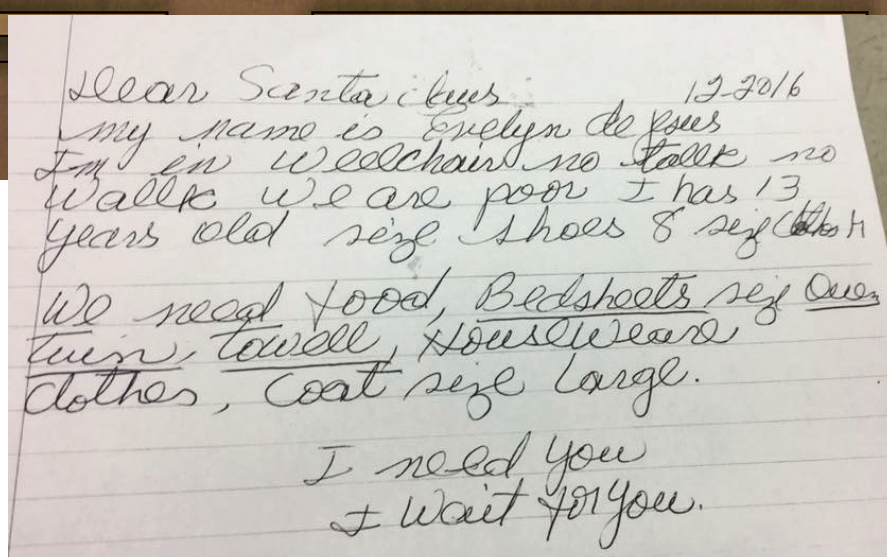 Dear Santa Clues 12-2016
my name is Evelyn de Jesus
I'm in Weelchair no Tallk no
Wallk we are poor I has 13
years old size shoes 8 size
We need food, Bedsheets size Queen
twin, towell, Housewear
clothes, Coat size Large.
I need you
I Wait for you.